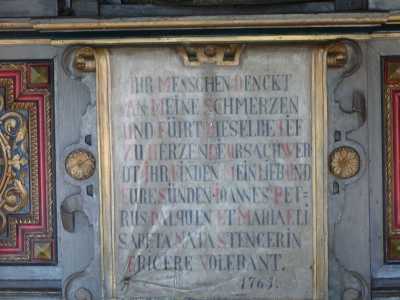 IHR MENSCHEN DENCKT
AN MEINE SCHMERZEN
UND FÜHRT DIESELBE TIEF
ZU HERZEN DE URSACH WER
UT IHR FINDEN MEIN LIEB UND
EURE SÜNDEN IOANNES PET=
RUS ET MARIA ELI
SABETA NATA STENCERIN
ERIGERE VOLEBANT.
1763.